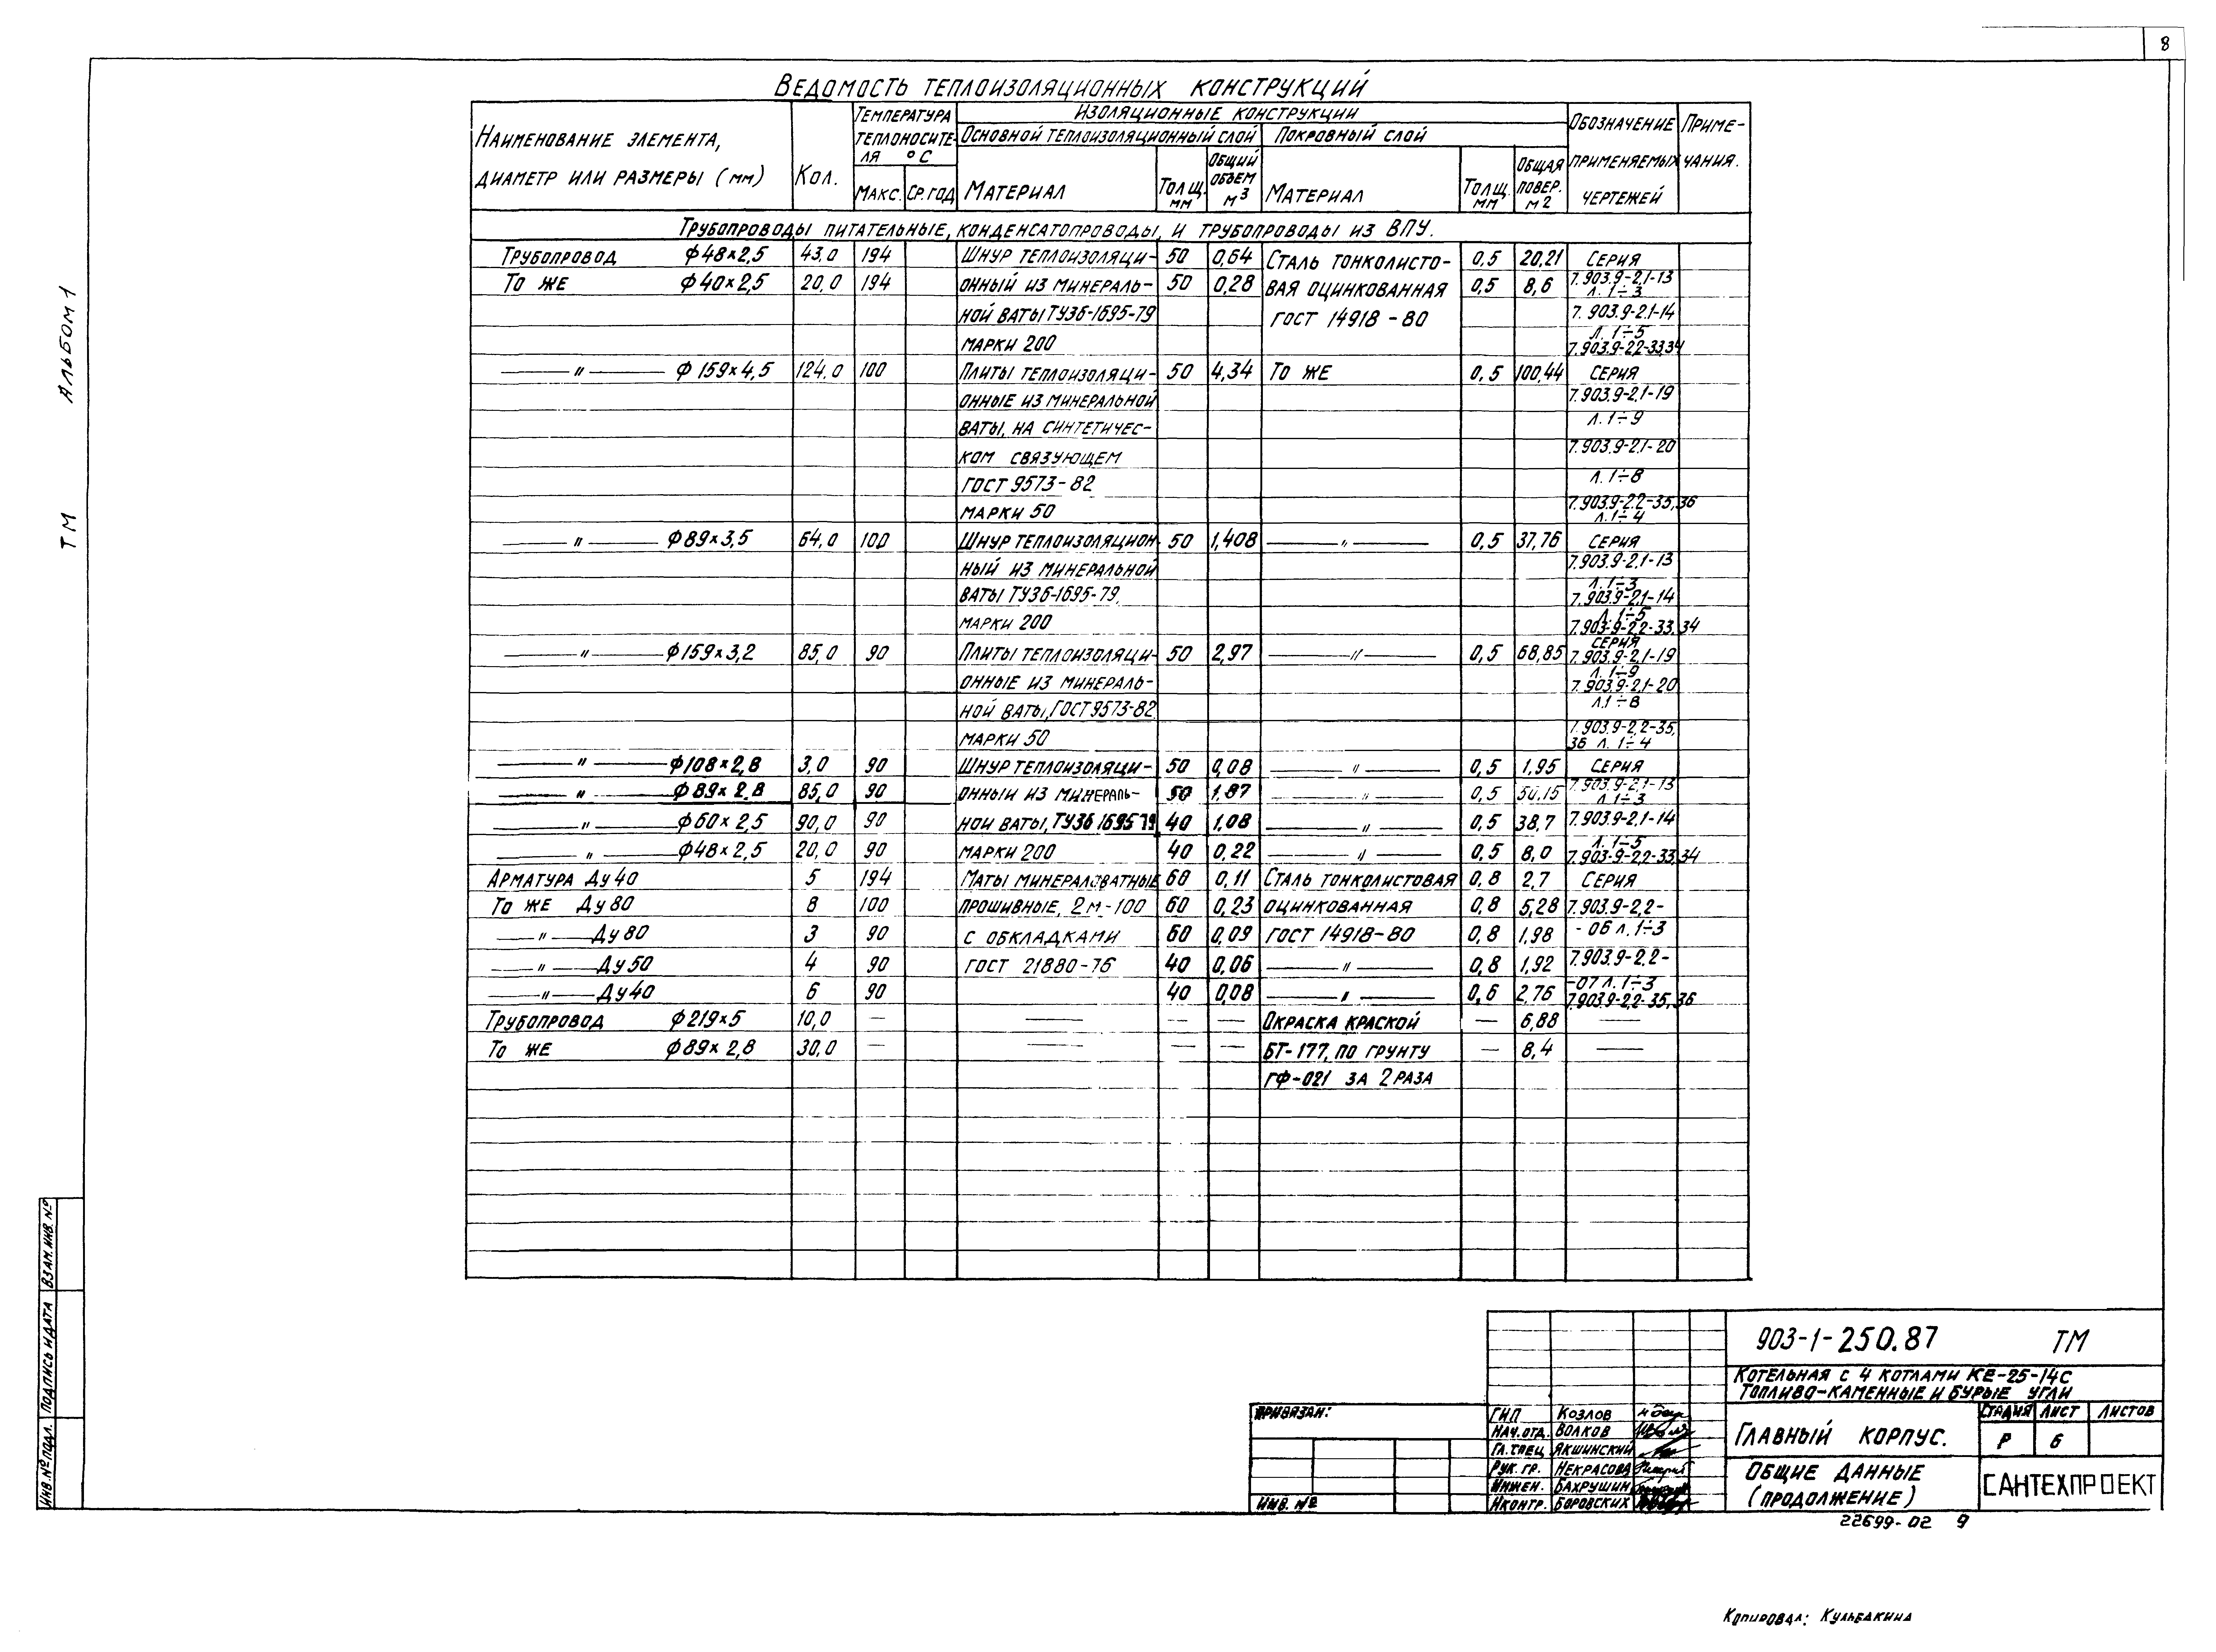 8
Ведомость теплоизоляционных конструкций
Наименование элемента, диаметр или размеры (мм)
Кол.
Температура теплоносителя °С
Макс. Ср. год
Изоляционные конструкции
Основной теплоизоляционный слой
Покровный слой
Материал
Толщ. мм
Общий объем м3
Материал
Толщ. мм
Общая повер. м2
Обозначение применяемых чертежей
Примечания.
Трубопроводы питательные, конденсатопроводы, и трубопроводы из ВПУ.
Трубопровод ф48×2,5 43,0 194 Шнур теплоизоляци- 50 0,64 Сталь тонколисто- 0,5 20,21 серия
То же ф40×2,5 20,0 194 онный из минераль- 50 0,28 вая оцинкованная 0,5 8,6 7.903.9-2.1-13 л. 1÷3
ной ваты ТУ36-1695-79 ГОСТ 14918-80 7.903.9-2.1-14
марки 200 л. 1÷5 7.903.9-2.2-33,34
—"— ф159×4,5 124,0 100 Плиты теплоизоляци- 50 4,34 То же 0,5 100,44 серия
онные из минеральной 7.903.9-2.1-19
ваты, на синтетичес- л. 1÷9
ком связующем 7.903.9-2.1-20
ГОСТ 9573-82 л. 1÷8
марки 50 7.903.9-2.2-35,36 л. 1÷4
—"— ф89×3,5 64,0 100 Шнур теплоизоляцион 50 1,408 —"— 0,5 37,76 серия
ный из минеральной 7.903.9-2.1-13
ваты ТУ36-1695-79 л. 1÷3 7.903.9-2.1-14
марки 200 л. 1÷5 7.903-9-2.2-33,34
—"— ф159×3,2 85,0 90 Плиты теплоизоляци- 50 2,97 —"— 0,5 68,85 серия 7.903.9-2.1-19
онные из минераль- л. 1÷9 7.903.9-2.1-20
ной ваты, ГОСТ 9573-82 л.1÷8
марки 50 7.903.9-2.2-35, 36 л. 1÷4
—"— ф108×2,8 3,0 90 Шнур теплоизоляци- 50 0,08 —"— 0,5 1,95 серия
—"— ф89×2,8 85,0 90 онный из минераль- 50 1,87 —"— 0,5 50,15 7.903.9-2.1-13 л. 1÷3
—"— ф60×2,5 90,0 90 ной ваты, ТУ36 1695 79 40 1,08 —"— 0,5 38,7 7.903.9-2.1-14
—"— ф48×2,5 20,0 90 марки 200 40 0,22 —"— 0,5 8,0 л. 1÷5 7.903-9-2.2-33,34
Арматура Ду 40 5 194 Маты минераловатные 60 0,11 Сталь тонколистовая 0,8 2,7 серия
То же Ду 80 8 100 прошивные, 2м-100 60 0,23 оцинкованная 0,8 5,28 7.903.9-2.2-
—"— Ду 80 3 90 с обкладками 60 0,09 ГОСТ 14918-80 0,8 1,98 -06 л. 1÷3
—"— Ду 50 4 90 ГОСТ 21880-76 40 0,06 —"— 0,8 1,92 7.903.9-2.2-
—"— Ду 40 6 90 40 0,08 —"— 0,6 2,76 -07 л. 1÷3 7.903.9-2.2-35,36
Трубопровод ф219×5 10,0 — — — — Окраска краской — 6,88 —
То же ф89×2,8 30,0 — — — — БТ-177, по грунту — 8,4 —
ГФ-021 за 2 раза
ТМ Альбом 1
Инв. № подл. Подпись и дата Взам. инв. №
903-1-250.87 ТМ
Котельная с 4 котлами КЕ-25-14С
Топливо-каменные и бурые угли
Привязан:
Инв. №
ГИП Козлов
Нач. отд. Волков
Гл. спец. Якшинский
Рук. гр. Некрасова
Инжен. Бахрушин
Н контр. Боровских
Главный корпус.
Стадия Лист Листов
Р 6
Общие данные
(продолжение)
САНТЕХПРОЕКТ
22699-02 9
Копировал: Кульбакина